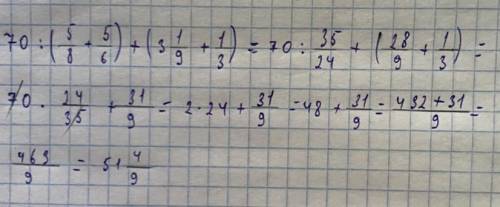 70 : (5/8 + 5/6) + (3 1/9 + 1/3) = 70 : 35/24 + (28/9 + 1/3) =
70 · 24/35 + 31/9 = 2·24 + 31/9 = 48 + 31/9 = 432 + 31/9 =
463/9 = 51 4/9